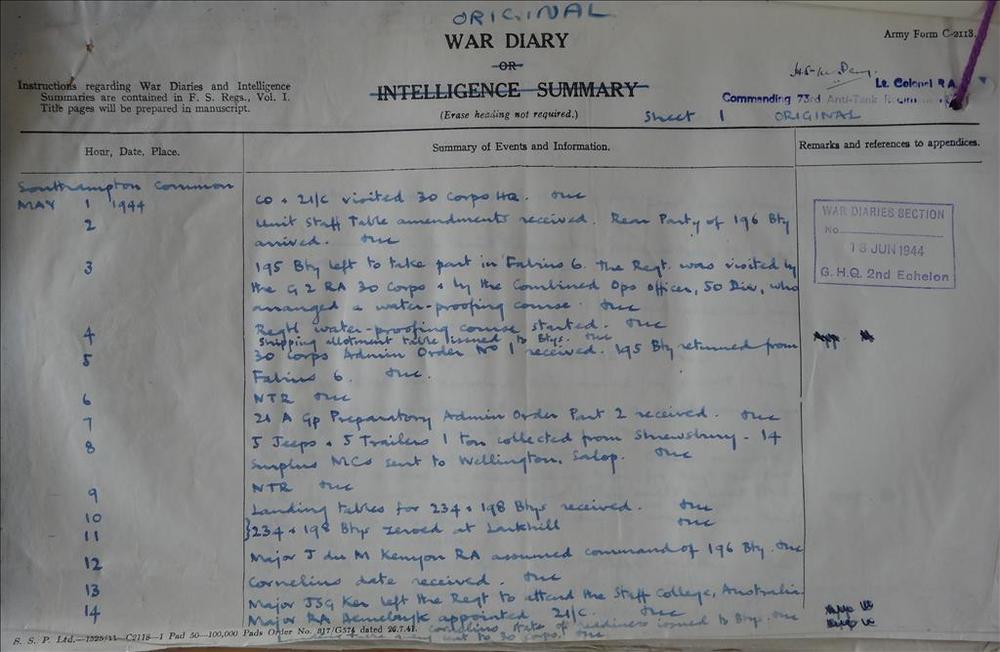 ORIGINAL
WAR DIARY
OR
INTELLIGENCE SUMMARY
(Erase heading not required.)
Army Form C-2118.
Instructions regarding War Diaries and Intelligence
Summaries are contained in F. S. Regs., Vol. I.
Title pages will be prepared in manuscript.
Lt. Colonel R A
Commanding 73rd Anti-Tank
Sheet 1 ORIGINAL
Hour, Date, Place.
Summary of Events and Information.
Remarks and references to appendices.
Southampton Common
MAY 1 1944 CO + 2I/C visited 30 Corps HQ.
2 Unit Staff Table amendments received. Rear Party of 196 Bty
arrived.
3 195 Bty left to take part in Fabius 6. The Regt. was visited by
the G 2 RA 30 Corps + by the Combined Ops officer, 50 Div, who
arranged a water-proofing course.
4 Regtl water-proofing course started.
Shipping allotment table issued to Btys.
5 30 Corps Admin Order No 1 received. 195 Bty returned from
Fabius 6.
6 NTR
7 21 A Gp Preparatory Admin Order Part 2 received.
8 5 Jeeps + 5 Trailers 1 ton collected from Shrewsbury - 14
Surplus MCs sent to Wellington, Salop.
9 NTR
10 Landing tables for 234 + 198 Btys received.
11 }234 + 198 Btys zeroed at Larkhill
12 Major J du M Kenyon RA assumed command of 196 Bty.
Cornelius date received.
13 Major JSG Ker left the Regt to attend the Staff College, Australia
14 Major RA appointed 2I/C.
state of readiness issued to Btys.
sent to 30 Corps.
WAR DIARIES SECTION
No
18 JUN 1944
G.H.Q. 2nd Echelon
S. S. P. Ltd.—1525/11—C2118—1 Pad 50—100,000 Pads Order No. 817/G574 dated 26.7.41.